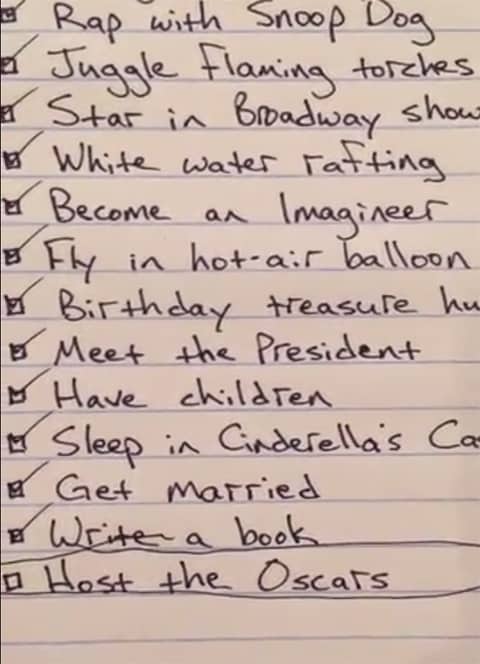 Rap with Snoop Dog
Juggle Flaming torches
Star in Broadway show
White water rafting
Become an Imagineer
Fly in hot-air balloon
Birthday treasure hu
Meet the President
Have children
Sleep in Cinderella's Ca
Get married
Write a book
Host the Oscars